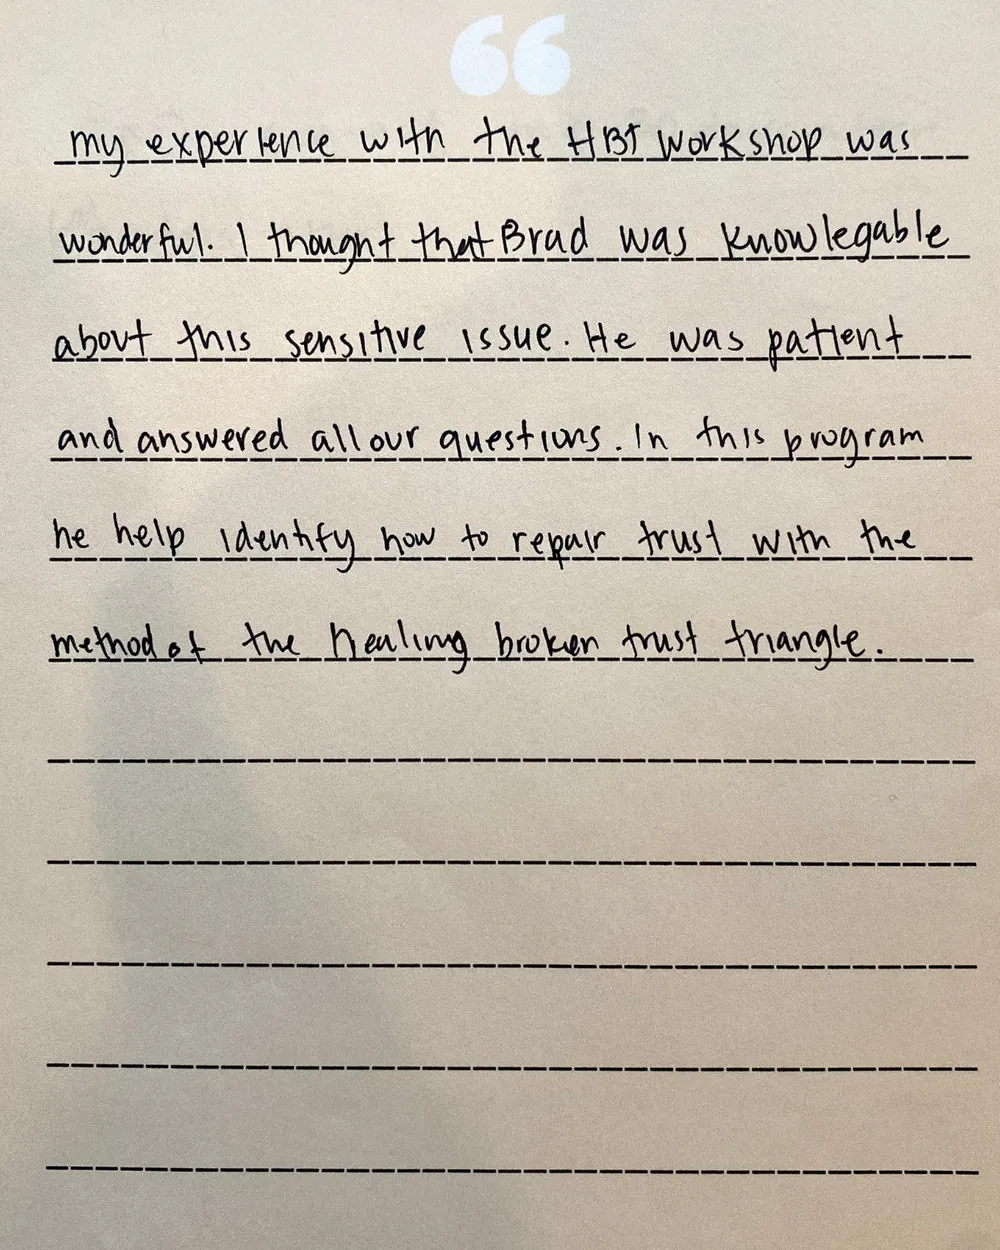 “
my experience with the HBT workshop was
wonderful. I thought that Brad was knowlegable
about this sensitive issue. He was patient
and answered all our questions. In this program
he help identify how to repair trust with the
method of the healing broken trust triangle.